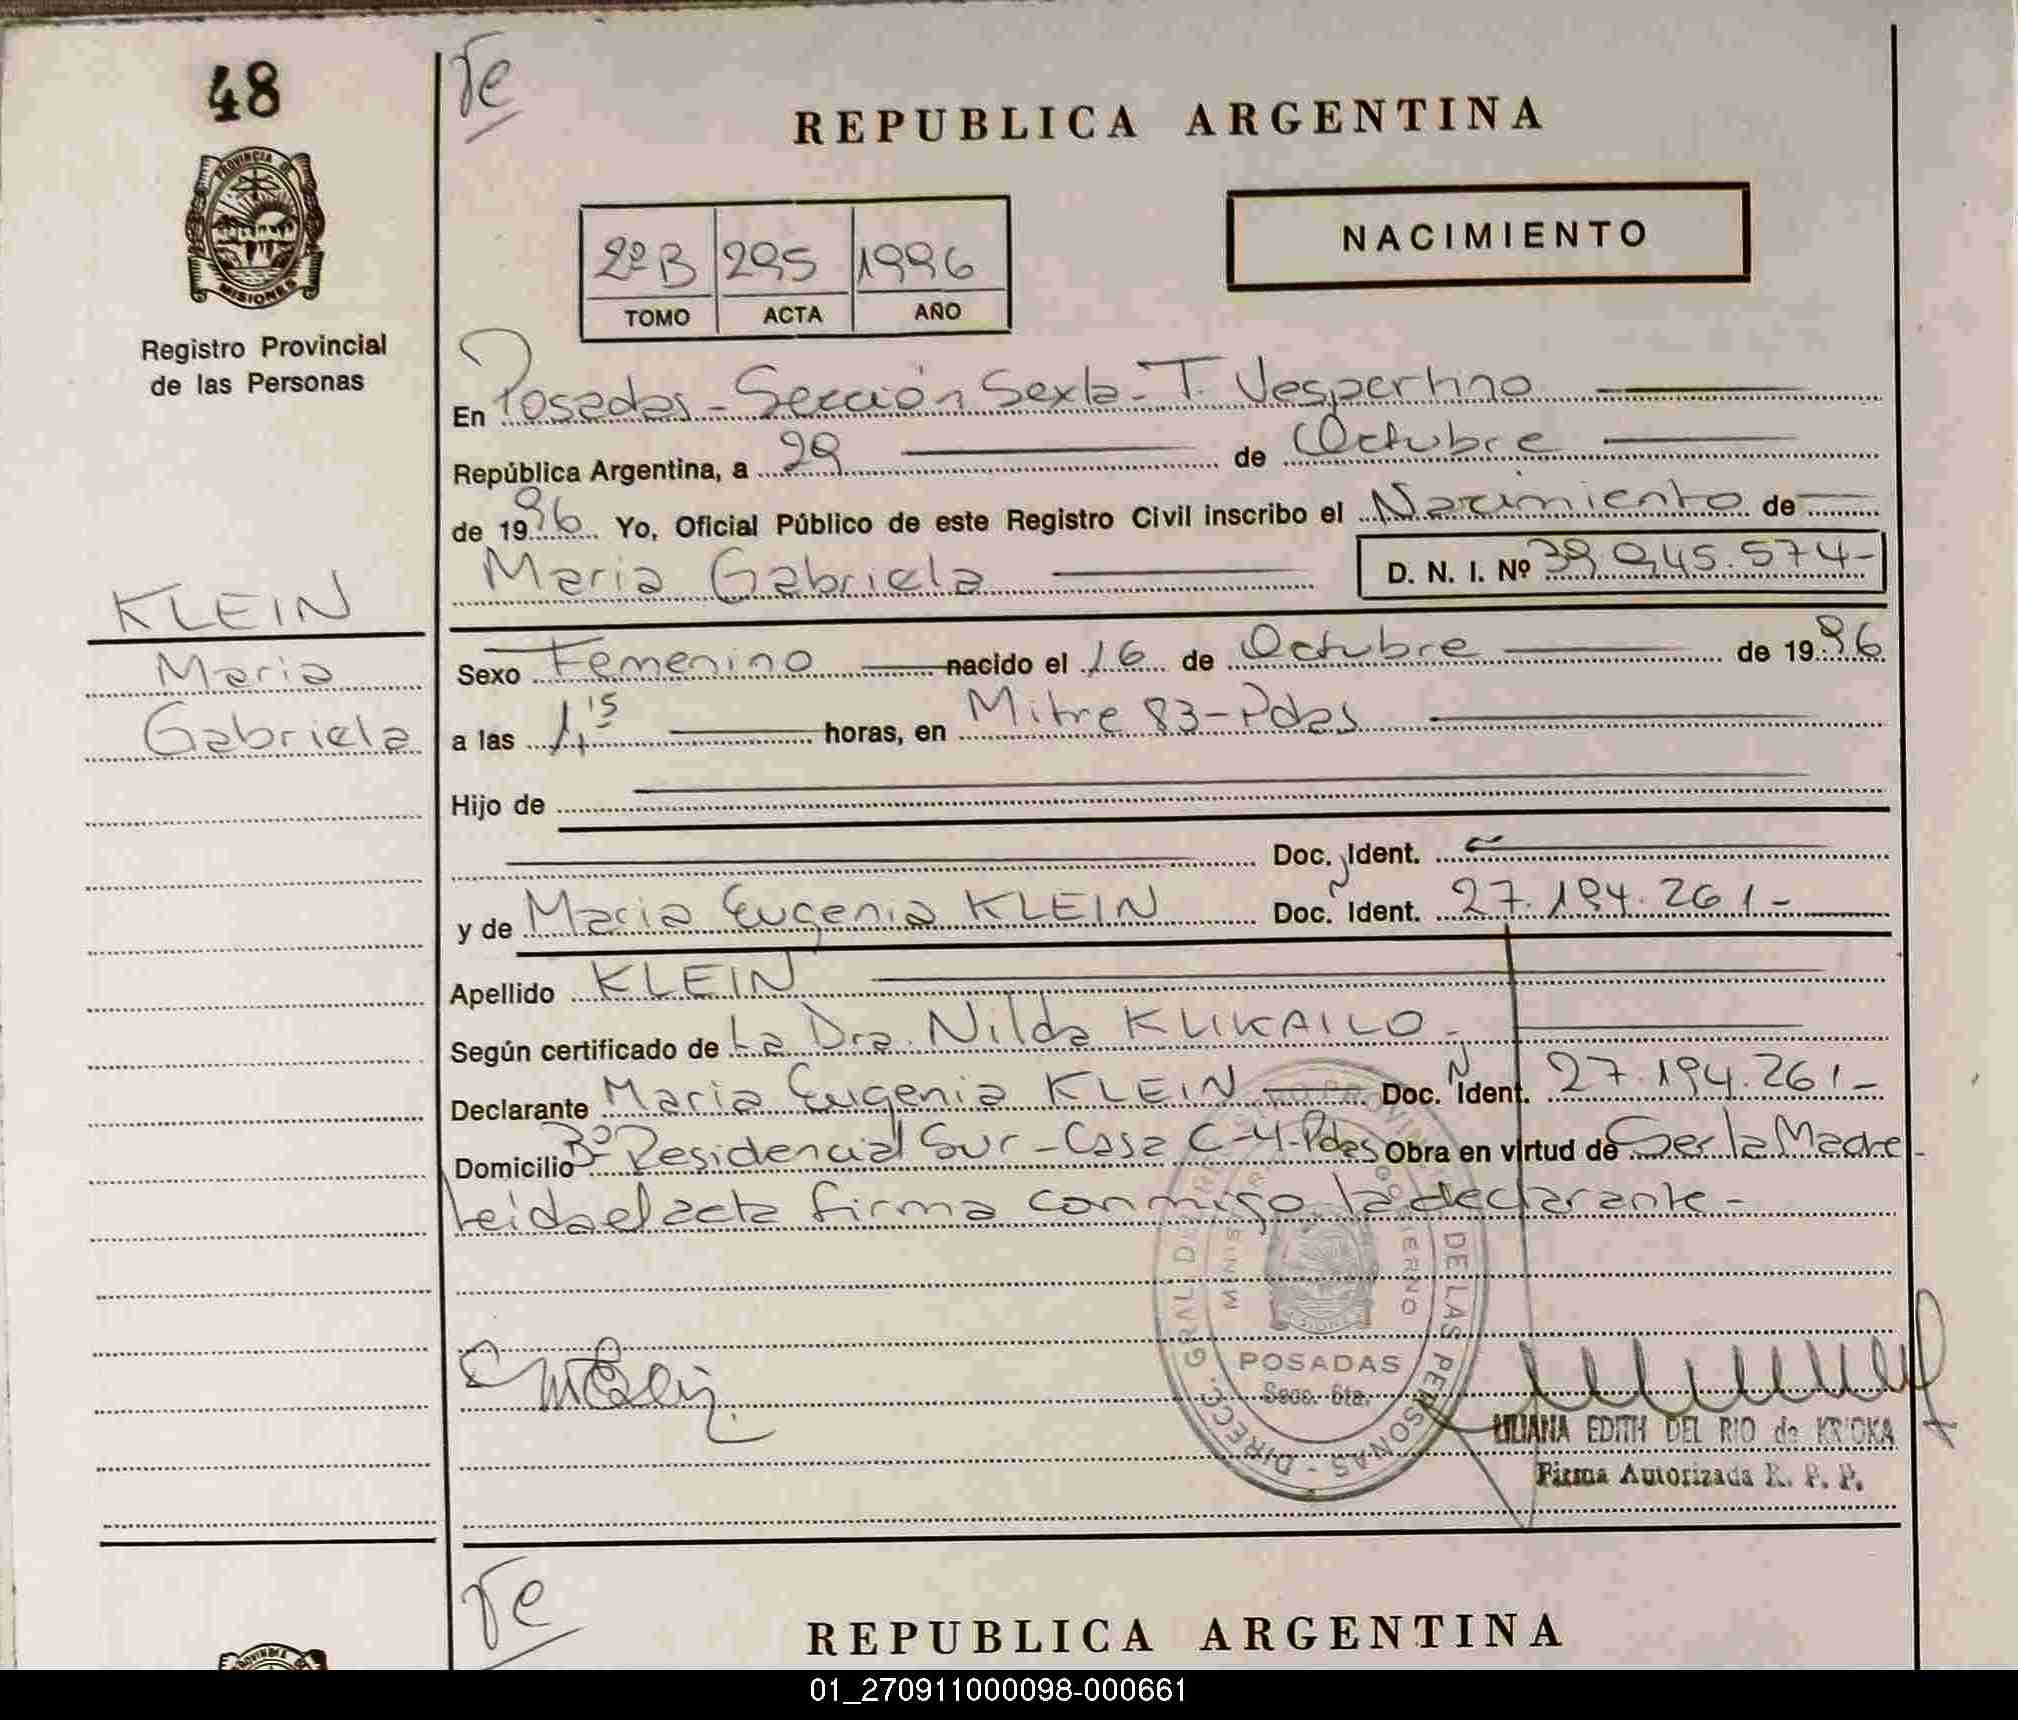 48
Te
REPUBLICA ARGENTINA
PROVINCIA DE
MISIONES
NACIMIENTO
2º B 295 1996
TOMO ACTA AÑO
Registro Provincial
de las Personas
En Posadas - Sección Sexta - T. Vespertino
República Argentina, a 29 de Octubre
de 1996 Yo, Oficial Público de este Registro Civil inscribo el Nacimiento de
Maria Gabriela D. N. I. Nº 39.945.574-
KLEIN
Maria
Gabriela
Sexo Femenino nacido el 16 de Octubre de 1996
a las 15 horas, en Mitre 83 - Pdas
Hijo de
Doc. Ident.
y de Maria Eugenia KLEIN Doc. N Ident. 27.194.261-
Apellido KLEIN
Según certificado de La Dra. Nilda KLIKAILO -
Declarante Maria Eugenia KLEIN Doc. N Ident. 27.194.261-
Domicilio Bº Residencial Sur - Casa C-4-Pdas Obra en virtud de Ser la Madre -
Leida el acta firma conmigo la declarante -
DIRECC. GRAL DE LAS PERSONAS
POSADAS
Secc. 6ta.
LILIANA EDITH DEL RIO de KRIOKA
Firma Autorizada R. P. P.
Te
REPUBLICA ARGENTINA
01_270911000098-000661